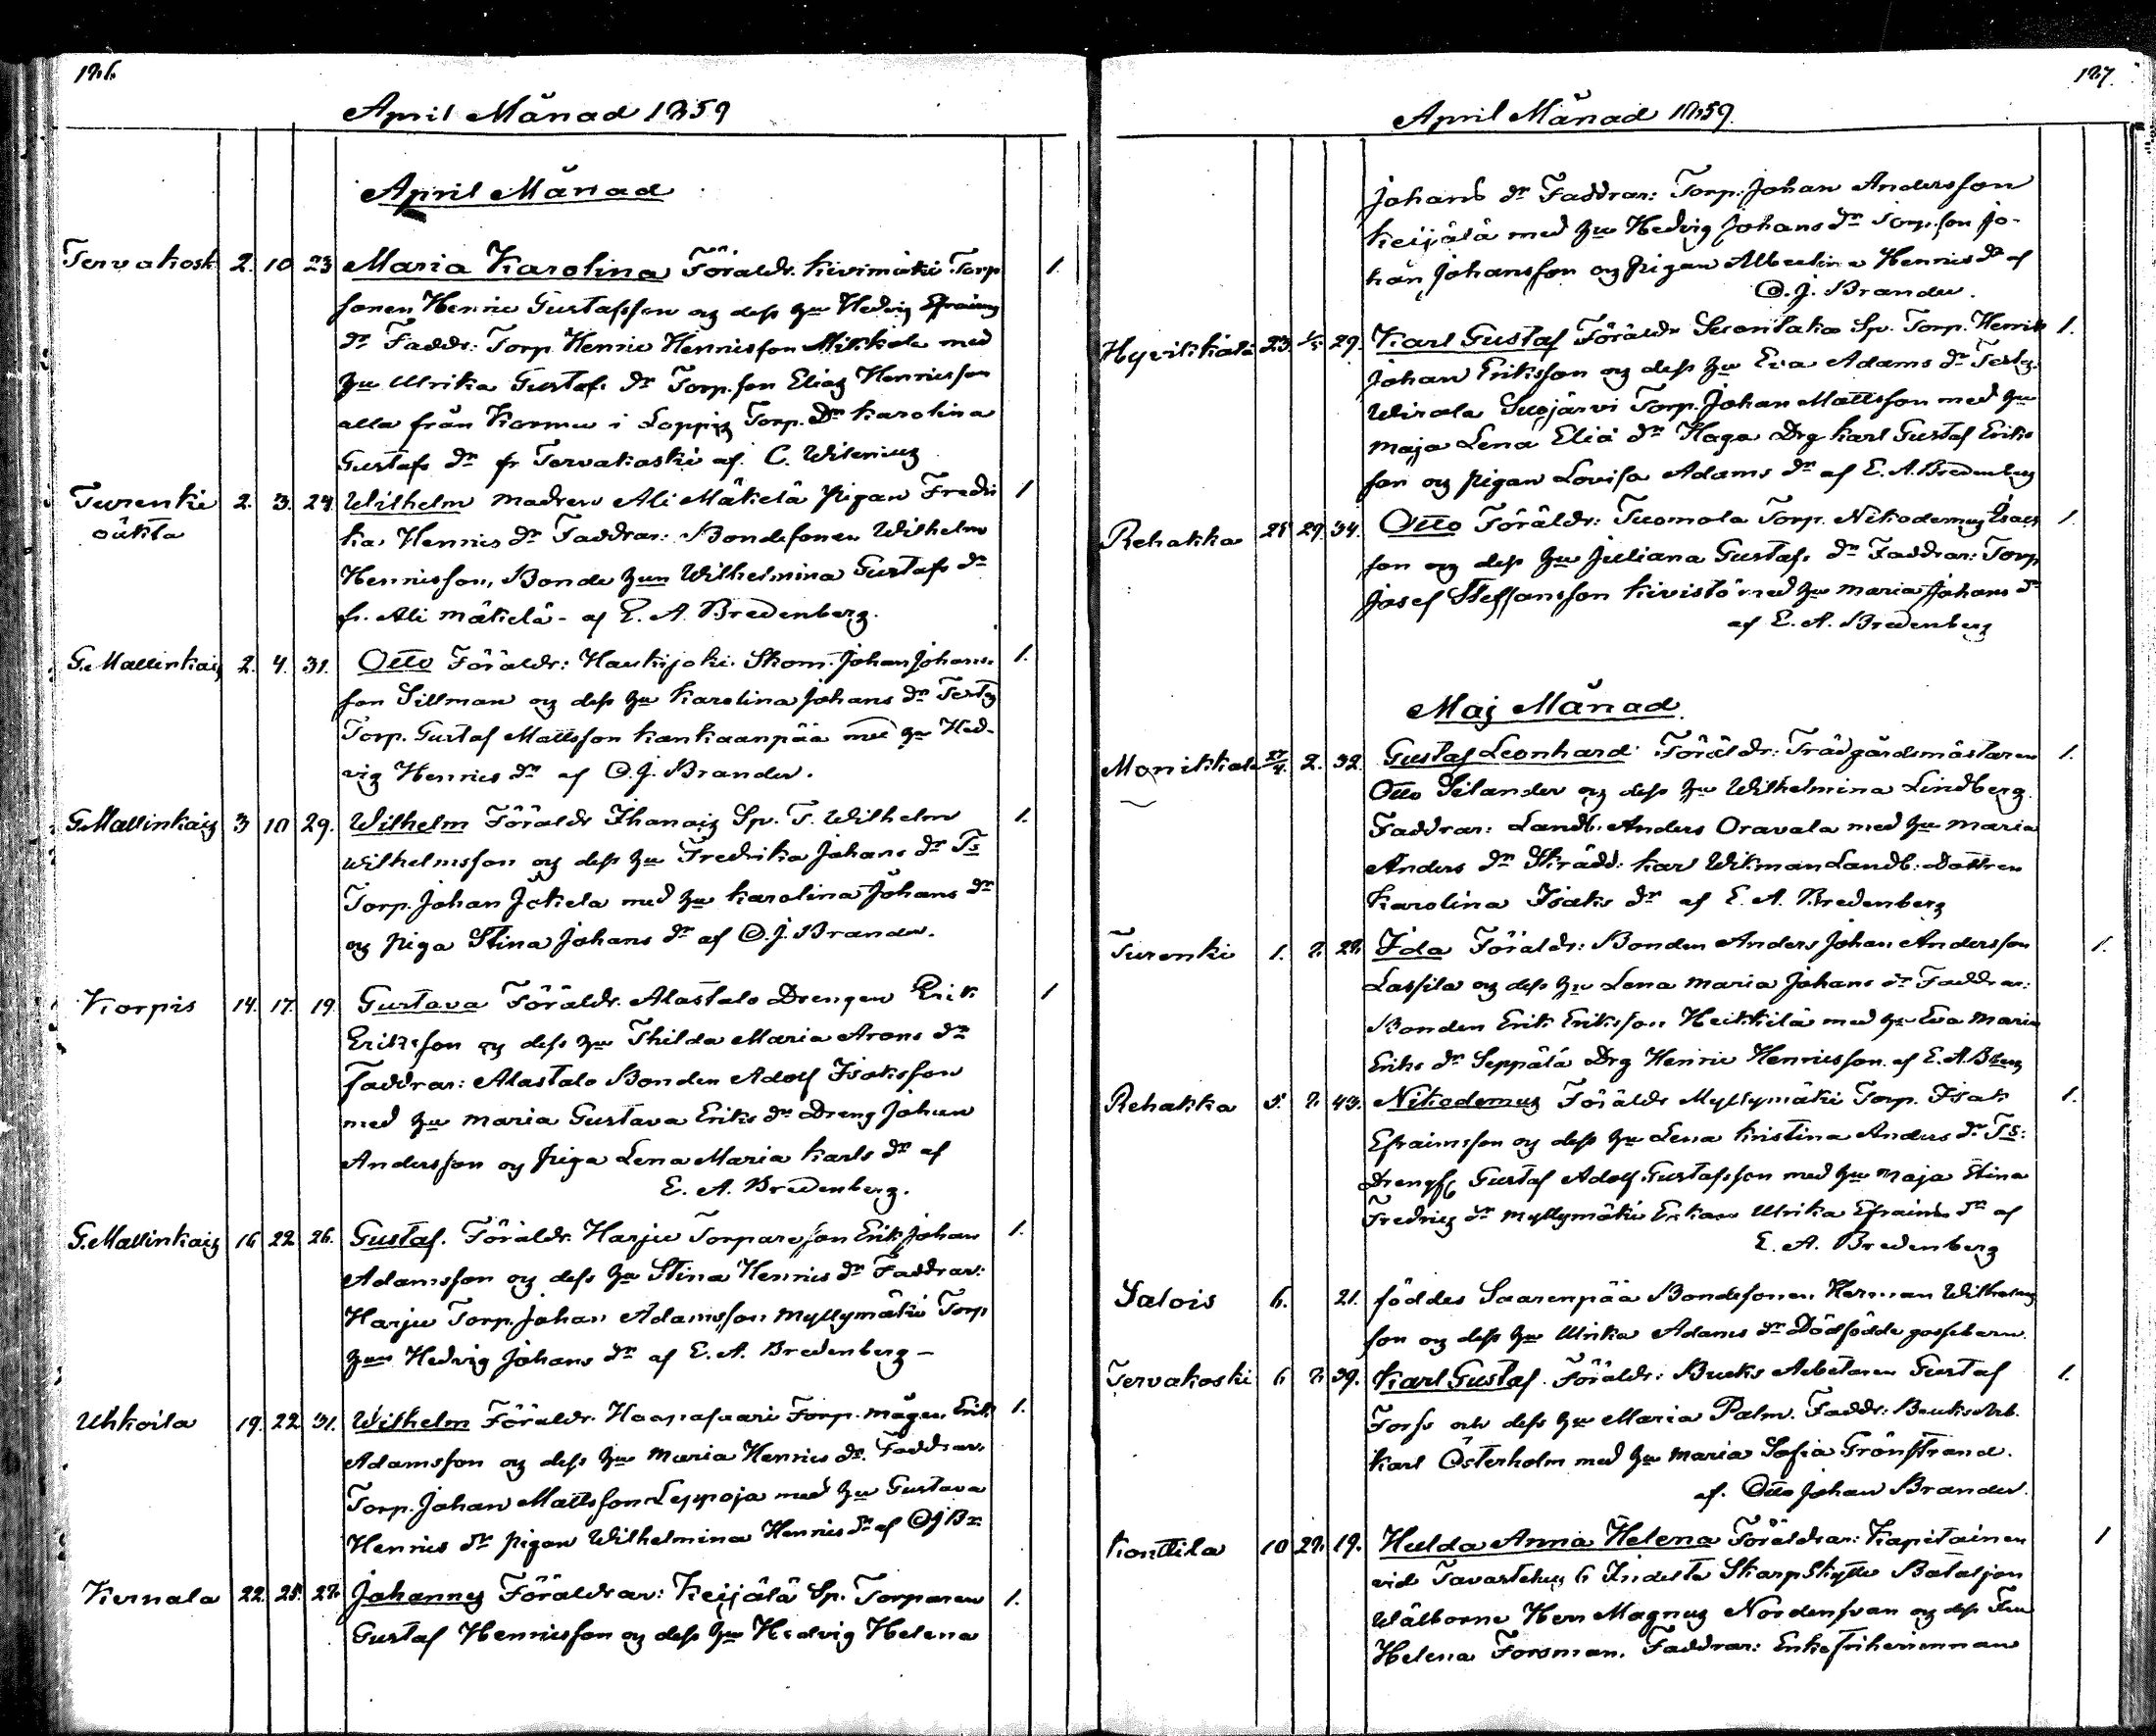 126.
April Månad 1859
April Månad
Tervakosk 2. 10 23 Maria Karolina Föraldr. Kivimäki Torp 1.
sonen Henric Gustafsson og dess hu Hedvig Efraims
dr Faddr: Torp. Henric Henricsson Mikkola med
hu Ulrika Gustafs dr Torp. son Elias Henricsson
alla från Kormu i Loppis Torp. Dr Karolina
Gustafs dr fr Tervakoski af. C. Wilenius
Turenki 2. 3. 24. Wilhelm modren Ali Mäkelä pigan Fredri 1
ka Henrics dr Faddrar: Bondesonen Wilhelm
Henricsson, Bonde hun Wilhelmina Gustafs dr
fr. Ali mäkelä - af E. A. Bredenberg.
G. Mallinkais 2. 4. 31. Otto Föräldr: Haukijoki. Skom. Johan Johans- 1.
son Sillman og dess hu Karolina Johans dr Testes
Torp. Gustaf Mattsson Kankaanpää med hu Hed-
vig Henrics dr af O. J. Brander.
G. Mallinkais 3 10 29. Wilhelm Föräldr Ihanais Sp. T. Wilhelm 1.
Wilhelmsson og dess hu Fredrika Johans dr Ts
Torp. Johan Jokela med hu Karolina Johans dr
og piga Stina Johans dr af O. J. Brander.
Korpis 14. 17. 19 Gustava Föräldr. Alastalo Drengen Erik 1
Eriksson og dess hu Thilda Maria Arons dr
Faddrar: Alastalo Bonden Adolf Isaksson
med hu Maria Gustava Eriks dr Dreng Johan
Andersson og Piga Lena Maria Karls dr af
E. A. Bredenberg.
G. Mallinkais 16 22 26. Gustaf. Föräldr. Harju Torpareson Erik Johan 1.
Adamsson og dess hu Stina Henrics dr Faddrar:
Harju Torp. Johan Adamsson Myllymäki Torp
hun Hedvig Johans dr af E. A. Bredenberg -
Uhkoila 19. 22 31. Wilhelm Föräldr. Haapasaari Torp. mågen Erik 1.
Adamsson og dess hu Maria Henrics dr. Faddrar.
Torp. Johan Mattsson Leppoja med hu Gustava
Henrics dr pigan Wilhelmina Henrics dr af OJBr
Kernala 22. 25. 28. Johannes Föräldrar: Keijälä Sp. Torparen 1.
Gustaf Henricsson og dess hu Hedvig Helena
127.
April Månad 1859.
Johans dr Faddrar: Torp. Johan Andersson
Keijälä med hu Hedvig Johans dr Torp. son Jo-
han Johansson og pigan Albertina Henrics dr af
O. J. Brander.
Hyvikkälä 23. 1/5 29. Karl Gustaf Föräldr Sp. Torp. Henrik 1.
Johan Eriksson og dess hu Eva Adams dr Testes.
Wirala Suojärvi Torp. Johan Mattsson med hu
Maja Lena Elia dr Haga Drg Karl Gustaf Eriks
son og pigan Lovisa Adams dr af E. A. Bredenberg
Rehakka 28 29 34. Otto Föräldr: Tuomola Torp. Nikodemus Isacs 1.
son og dess hu Juliana Gustafs dr Faddrar: Torp
Josef Steffansson Kivistö med hu Maria Johans dr
af E. A. Bredenberg
Maj Månad.
Monikkala 27/4. 2. 32. Gustaf Leonhard Föräldr: Trädgårdsmästaren 1.
Otto Selander og dess hu Wilhelmina Lindberg.
Faddrar: Landb. Anders Oravala med hu Maria
Anders dr Skrädd. Karl Wikman Landb. Dottren
Karolina Isaks dr af E. A. Bredenberg
Turenki 1. 8. 28. Ida Föräldr: Bonden Anders Johan Andersson 1.
Lassila og dess hu Lena Maria Johans dr Faddrar:
Bonden Erik Eriksson Heikkilä med hu Eva Maria
Eriks dr Seppälä Drg Henric Henricsson. af E. A. Bberg
Rehakka 5. 8. 43. Nikodemus Föräldr Myllymäki Torp. Isak 1.
Efraimsson og dess hu Lena Kristina Anders dr Ts:
Gustaf Adolf Gustafsson med hu Maja Stina
Fredrics dr Myllymäki Enkan Ulrika Efraims dr af
E. A. Bredenberg
Salois 6. 21. föddes Saarenpää Bondesonen Herman Wilhelms
son og dess hu Ulrika Adams dr Dödfödde gossebarn.
Tervakoski 6 8 39. Karl Gustaf. Föräldr: Bruks Arbetaren Gustaf 1.
Forss och dess hu Maria Palm. Faddr: Bruksarb.
Karl Österholm med hu Maria Sofia Grönstrand.
af. Otto Johan Brander.
Konttila 10 28. 19. Hulda Anna Helena Föräldrar: Kapitainen 1
vid Tavastehus 6 Indelta Skarpskytte Bataljon
Wälborne Herr Magnus Nordensvan og dess Fru
Helena Forsman. Faddrar: Enkefriherinnan